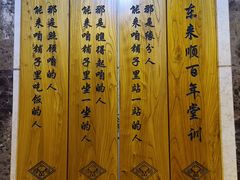 东来顺百年堂训
能来咱铺子里站一站的人
那是缘分人
能来咱铺子里坐一坐的人
那是瞧得起咱的人
能来咱铺子里吃饭的人
那是照顾咱的人